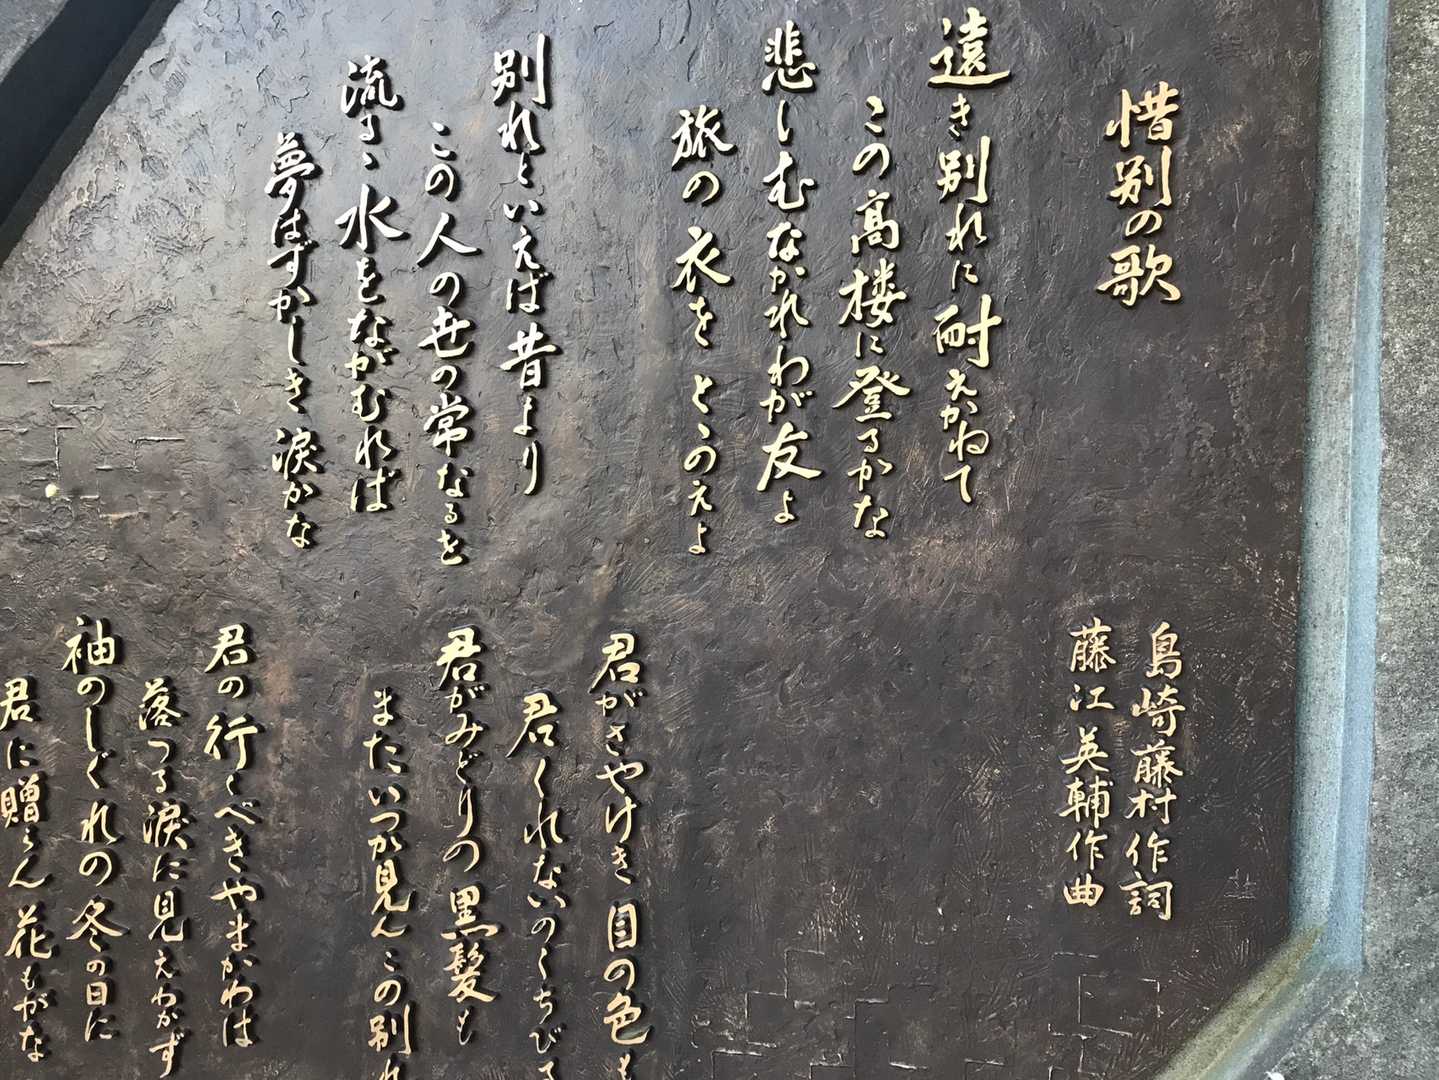 惜別の歌
島崎藤村作詞
藤江英輔作曲
遠き別れに耐えかねて
この高楼に登るかな
悲しむなかれわが友よ
旅の衣をとゝのえよ
別れといえば昔より
この人の世の常なるを
流るゝ水をながむれば
夢はずかしき涙かな
君がさやけき目の色も
君くれないのくちびる
君がみどりの黒髪も
またいつか見んこの別れ
君の行くべきやまかわは
落つる涙に見えわかず
袖のしぐれの冬の日に
君に贈らん花もがな